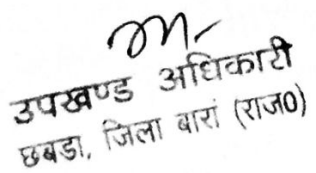 उपखण्ड अधिकारी
छबडा, जिला बारां (राज0)